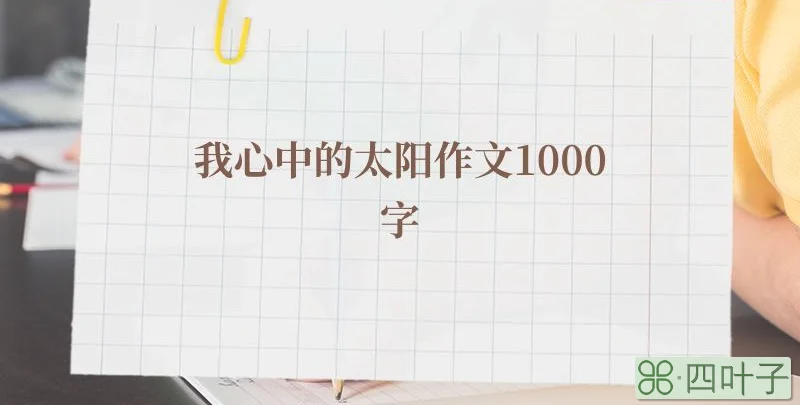 我心中的太阳作文1000
字
四叶子